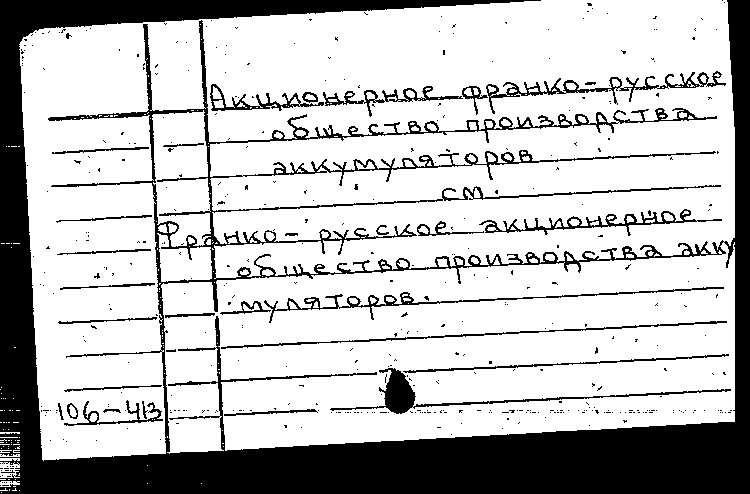 Акционерное франко-русское
общество производства
аккумуляторов
см.
Франко-русское акционерное
общество производства акку
муляторов.
106-413